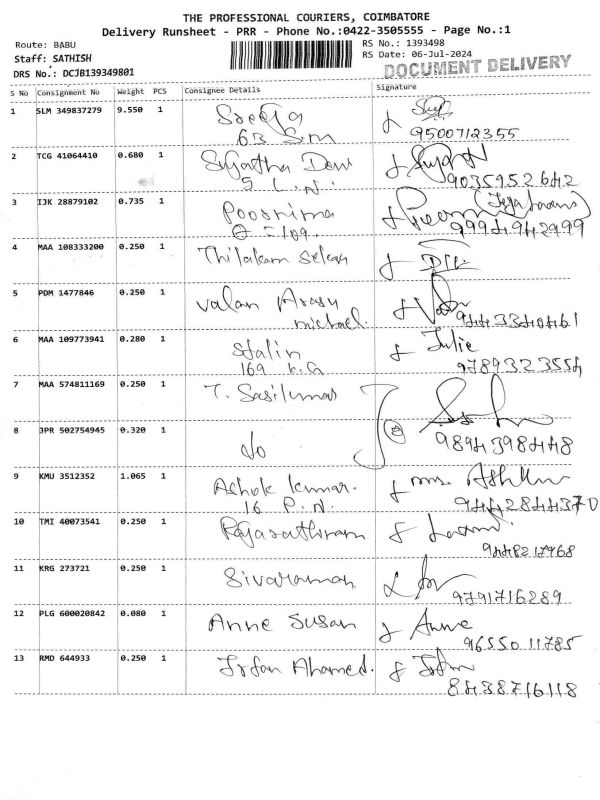 THE PROFESSIONAL COURIERS, COIMBATORE
Delivery Runsheet - PRR - Phone No.:0422-3505555 - Page No.:1
Route: BABU
RS No.: 1393498
Staff: SATHISH
RS Date: 06-Jul-2024
DRS No.: DCJB139349801
DOCUMENT DELIVERY
S No Consignment No Weight PCS Consignee Details Signature
1 SLM 349837279 9.550 1 Sreeja
63 Sm 9500712355
2 TCG 41064410 0.680 1 Sujatha Devi
5 L.N. 9035952642
3 IJK 28879102 0.735 1 Poornima
9994942999
4 MAA 108333200 0.250 1 Thilakam
5 PDM 1477846 0.250 1 Valan Arasu
michael 9443340461
6 MAA 109773941 0.280 1 Stalin Julie
169 K.G 9789323554
7 MAA 574811169 0.250 1 T. Sasikumar
8 JPR 502754945 0.320 1 do 9894398448
9 KMU 3512352 1.065 1 Ashok kumar. mrs. Ashok
16 P.N. 9442844370
10 TMI 40073541 0.250 1 Rajarathinam
9448217968
11 KRG 273721 0.250 1 Sivaraman
9791716289
12 PLG 600020842 0.080 1 Anne Susan Anne
9655011785
13 RMD 644933 0.250 1 Irfan Ahamed. Irfan
8438716118